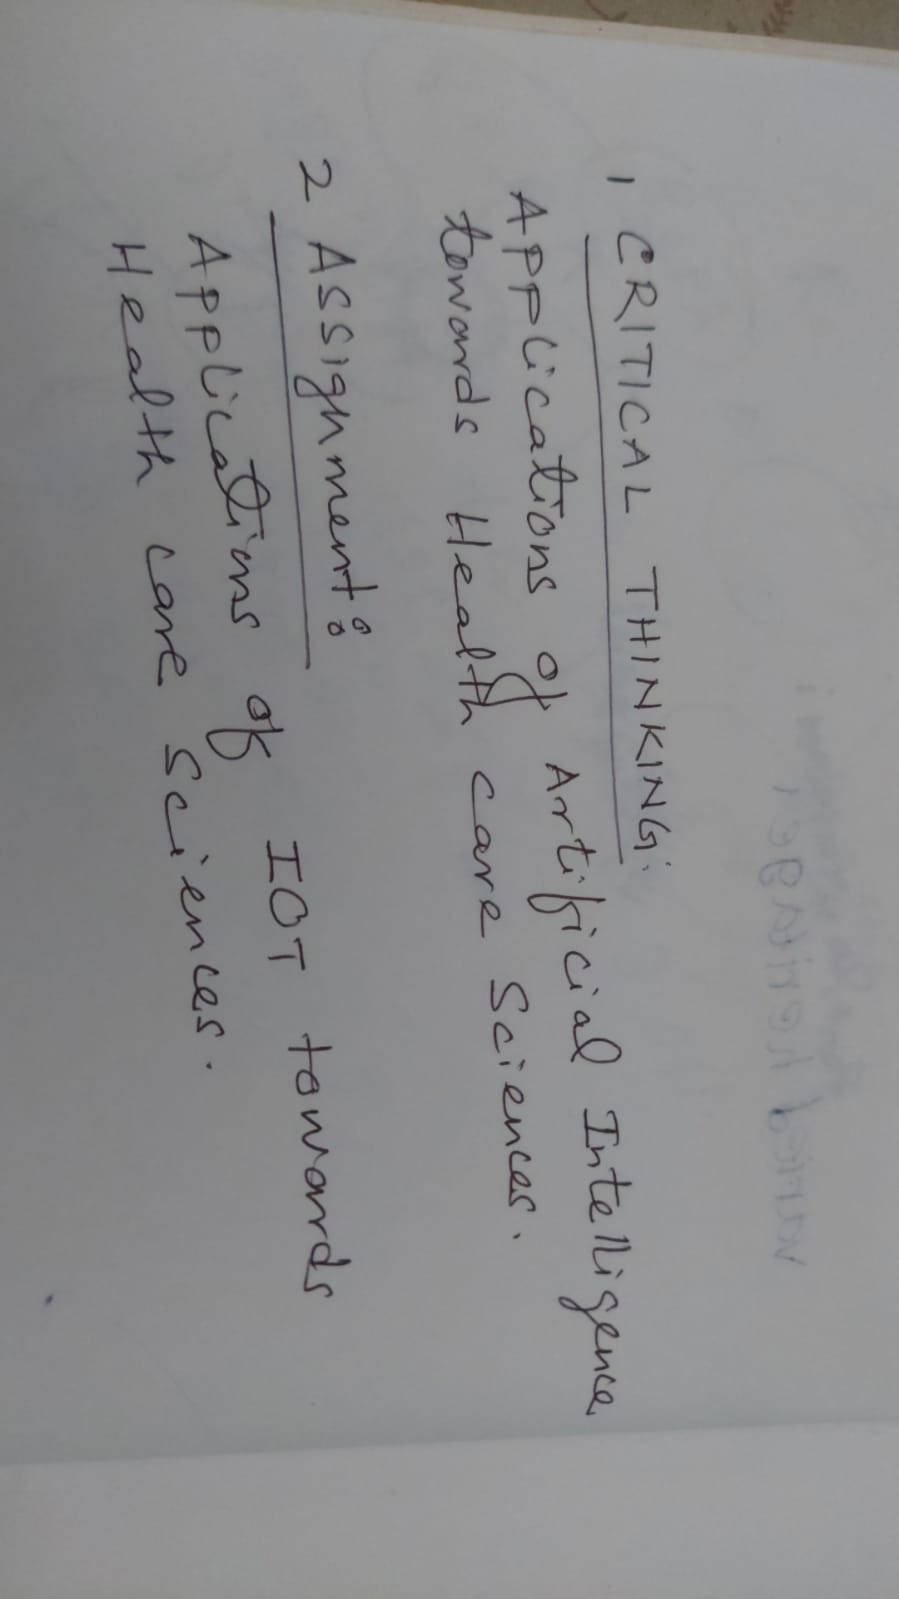 1 CRITICAL THINKING:
Applications of Artificial Intelligence
towards Health care Sciences.
2 Assignment:
Applications of IOT towards
Health care Sciences.